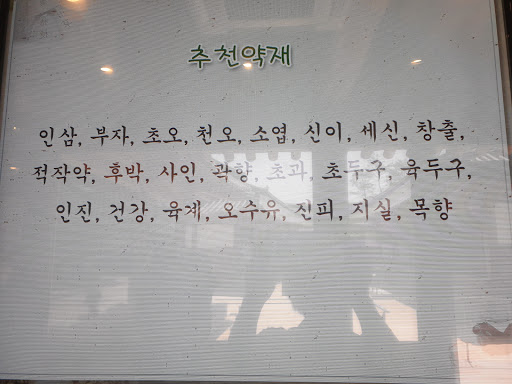 추천약재
인삼, 부자, 초오, 천오, 소엽, 신이, 세신, 창출,
적작약, 후박, 사인, 곽향, 초과, 초두구, 육두구,
인진, 건강, 육계, 오수유, 진피, 지실, 목향